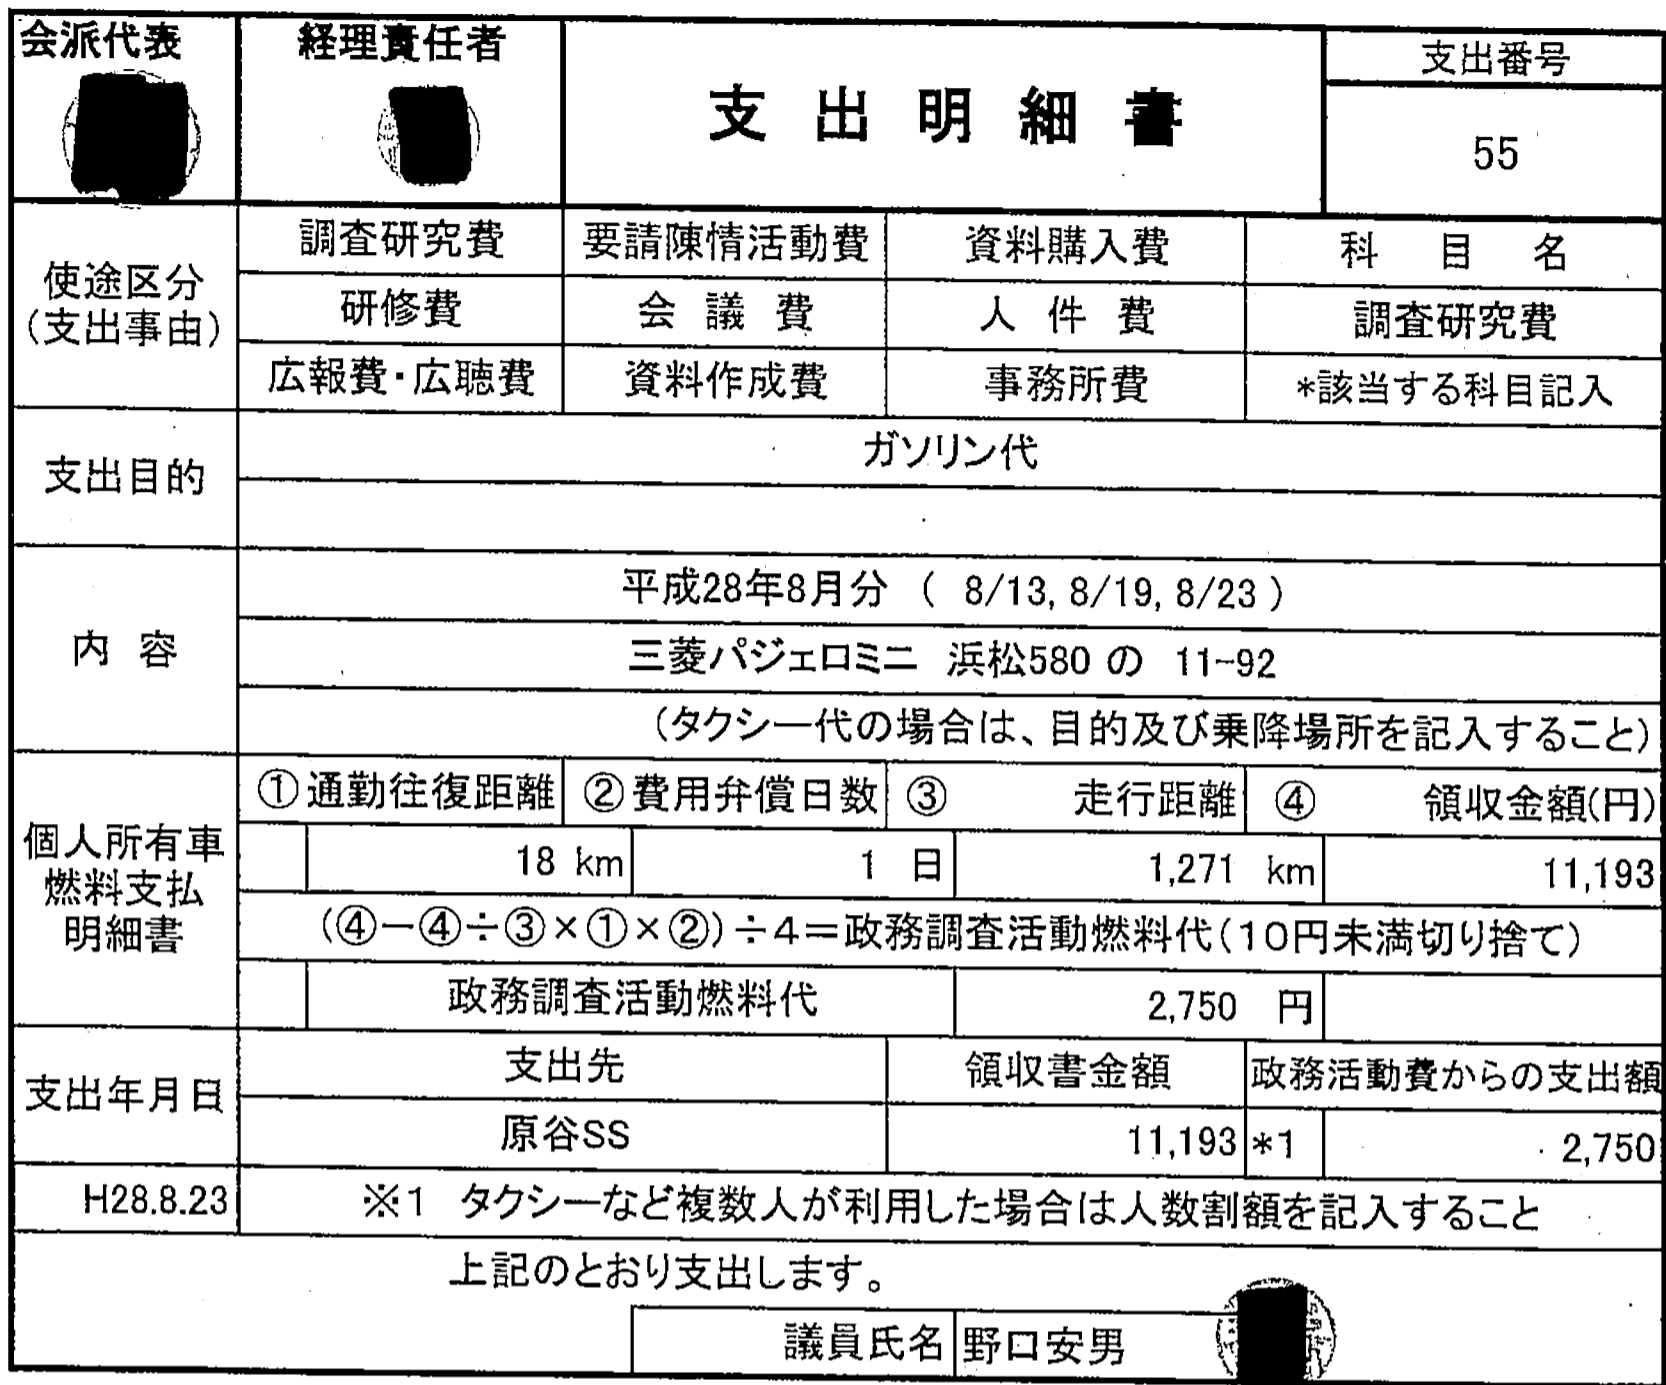 会派代表 経理責任者 支出明細書 支出番号
55
使途区分
(支出事由)
調査研究費 要請陳情活動費 資料購入費 科 目 名
研修費 会 議 費 人 件 費 調査研究費
広報費・広聴費 資料作成費 事務所費 *該当する科目記入
支出目的
ガソリン代
内 容
平成28年8月分 ( 8/13, 8/19, 8/23 )
三菱パジェロミニ 浜松580 の 11-92
(タクシー代の場合は、目的及び乗降場所を記入すること)
個人所有車
燃料支払
明細書
①通勤往復距離 ②費用弁償日数 ③ 走行距離 ④ 領収金額(円)
18 km 1 日 1,271 km 11,193
(④-④÷③×①×②)÷4=政務調査活動燃料代(10円未満切り捨て)
政務調査活動燃料代 2,750 円
支出年月日
支出先 領収書金額 政務活動費からの支出額
原谷SS 11,193 *1 2,750
H28.8.23 ※1 タクシーなど複数人が利用した場合は人数割額を記入すること
上記のとおり支出します。
議員氏名 野口安男